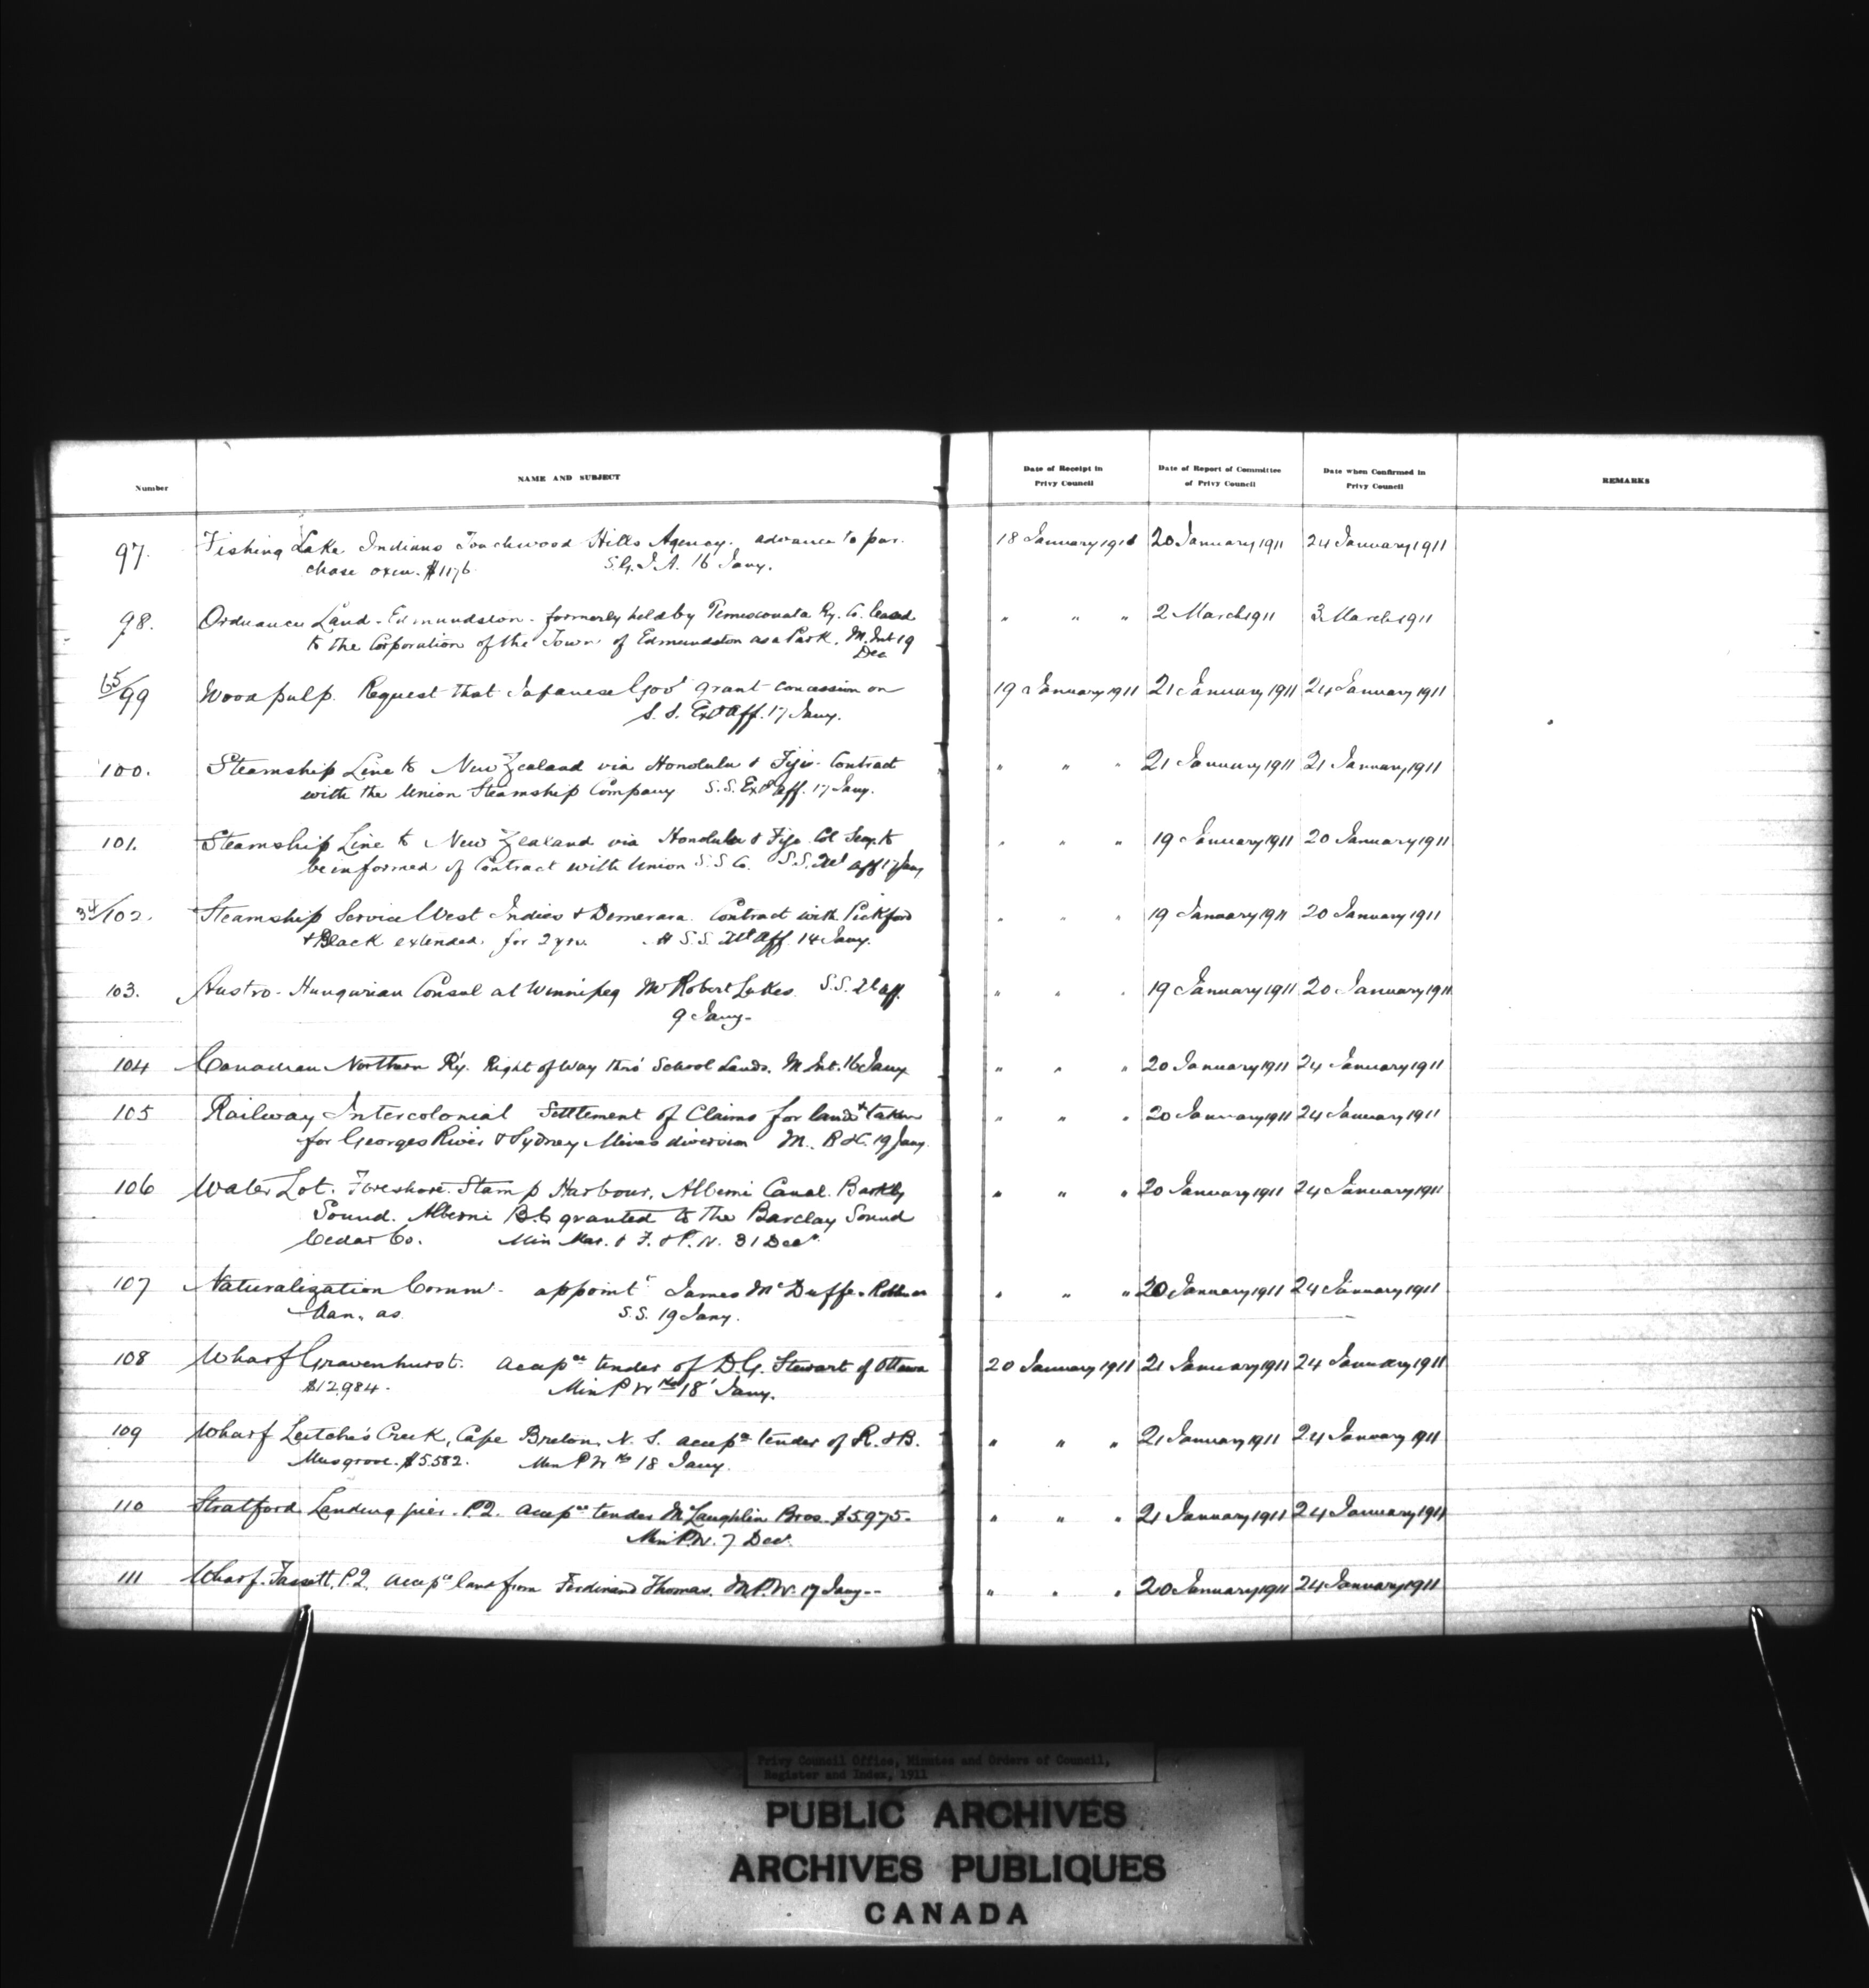 Number NAME AND SUBJECT Date of Receipt in Privy Council Date of Report of Committee of Privy Council Date when Confirmed in Privy Council REMARKS
97. Fishing Lake Indians Touchwood Hills Agency. advance to pur- 18 January 1911 20 January 1911 24 January 1911
chase oxen. $1176. S.G.I.A. 16 Jany.
98. Ordnance Land - Edmundston - formerly held by Temiscouata Ry. Co. leased " " " 2 March 1911 3 March 1911
to the Corporation of the Town of Edmundston as a Park. M. Int 19
Dec
65/99 Wood pulp. Request that Japanese Govt grant concession on 19 January 1911 21 January 1911 24 January 1911
S. S. Extl Aff. 17 Jany.
100. Steamship Line to New Zealand via Honolulu & Fiji - Contract " " " 21 January 1911 21 January 1911
with the Union Steamship Company S.S. Extl Aff. 17 Jany.
101. Steamship Line to New Zealand via Honolulu & Fiji Col Secy. to " " " 19 January 1911 20 January 1911
be informed of Contract with Union S.S. Co. S.S. Aff 17 Jany
34/102. Steamship Service West Indies & Demerara. Contract with Pickford " " " 19 January 1911 20 January 1911
& Black extended for 2 yrs. S.S. Aff 14 Jany.
103. Austro-Hungarian Consul at Winnipeg Mr Robert S.S. Aff. " " " 19 January 1911 20 January 1911
9 Jany-
104 Canadian Northern Ry. Right of Way thro' School Lands. M. Int. 16 Jany " " " 20 January 1911 24 January 1911
105 Railway Intercolonial Settlement of Claims for lands taken " " " 20 January 1911 24 January 1911
for Georges River & Sydney Mines diversion M. R & C. 19 Jany.
106 Water Lot. Foreshore. Stamp Harbour, Alberni Canal. Barkly " " " 20 January 1911 24 January 1911
Sound. Alberni B.C. granted to the Barclay Sound
Cedar Co. Min Mar. & F. & P. N. 31 Decr
107 Naturalization Commr. appoint James McDuffe " " " 20 January 1911 24 January 1911
Man. as S.S. 19 Jany.
108 Wharf Gravenhurst. accepce tender of D.G. Stewart of Ottawa 20 January 1911 21 January 1911 24 January 1911
$12,984. Min P Wks 18 Jany.
109 Wharf Leitche's Creek, Cape Breton, N. S. accepce tender of R. & B. " " " 21 January 1911 24 January 1911
Musgrove. $5,582. Min P Wks 18 Jany.
110 Stratford Landing pier. P.Q. accepce tender McLaughlin Bros. $5975. " " " 21 January 1911 24 January 1911
Min P.W. 7 Decr.
111 Wharf. Fassett, P.Q. accepce land from Ferdinand Thomas. M.P.W. 17 Jany-- " " " 20 January 1911 24 January 1911
Privy Council Office, Minutes and Orders of Council,
Register and Index, 1911
PUBLIC ARCHIVES
ARCHIVES PUBLIQUES
CANADA